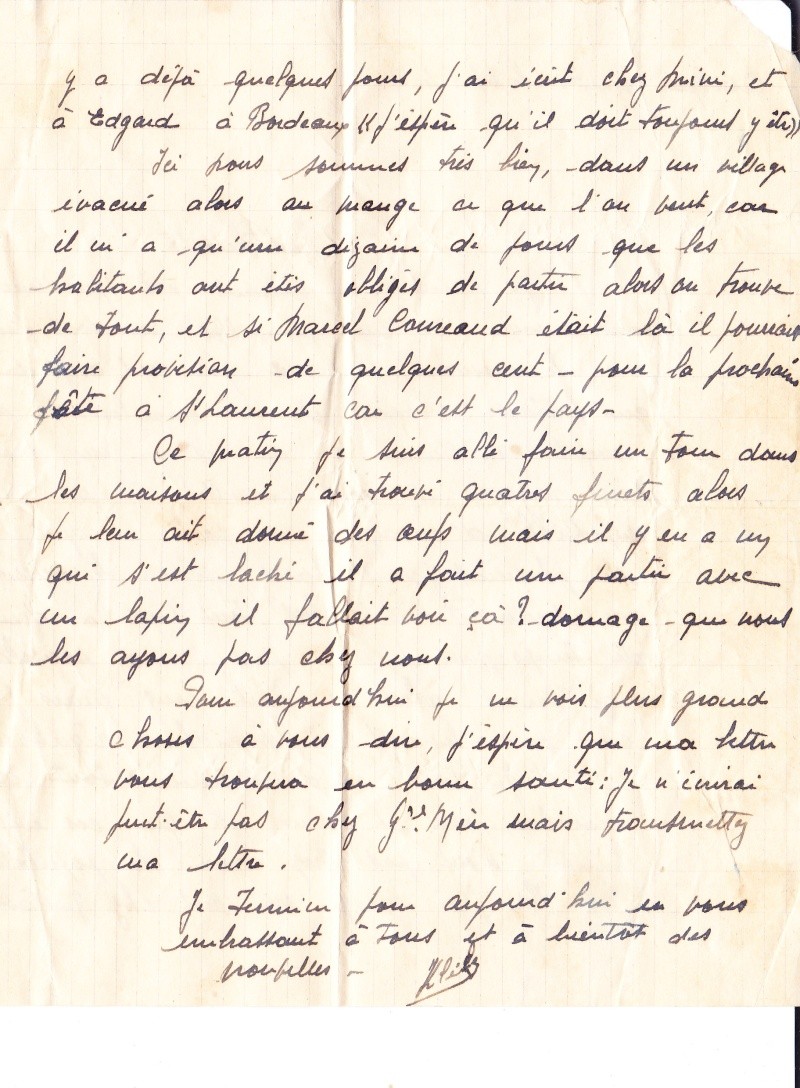 y a déjà quelques jours, j'ai écrit chez Mimi, et
à Edgard à Bordeaux ((j'éspère qu'il doit toujours y être))
Ici nous sommes très bien, dans un village
évacué alors on mange ce que l'on veut, car
il n'a qu'une dizaine de jours que les
habitants ont étés obligés de partir alors on trouve
de tout, et si Marcel Coureaud était là il pourrait
faire provision de quelques cent – pour la prochaine
fête à St Laurent car c'est le pays –
Ce matin je suis allé faire un tour dans
les maisons et j'ai trouvé quatres furets alors
je leur ait donné des œufs mais il y en a un
qui s'est laché il a fait une partie avec
un lapin il fallait voir çà ? domage que nous
les ayons pas chez nous.
Pour aujourd'hui je ne vois plus grand
choses à vous dire, j'éspère que ma lettre
vous trouvera en bonne santé : Je n'écrirai
peut-être pas chez Gr.d Mère mais transmettez
ma lettre.
Je termine pour aujourd'hui en vous
embrassant à tous et à bientôt des
nouvelles –